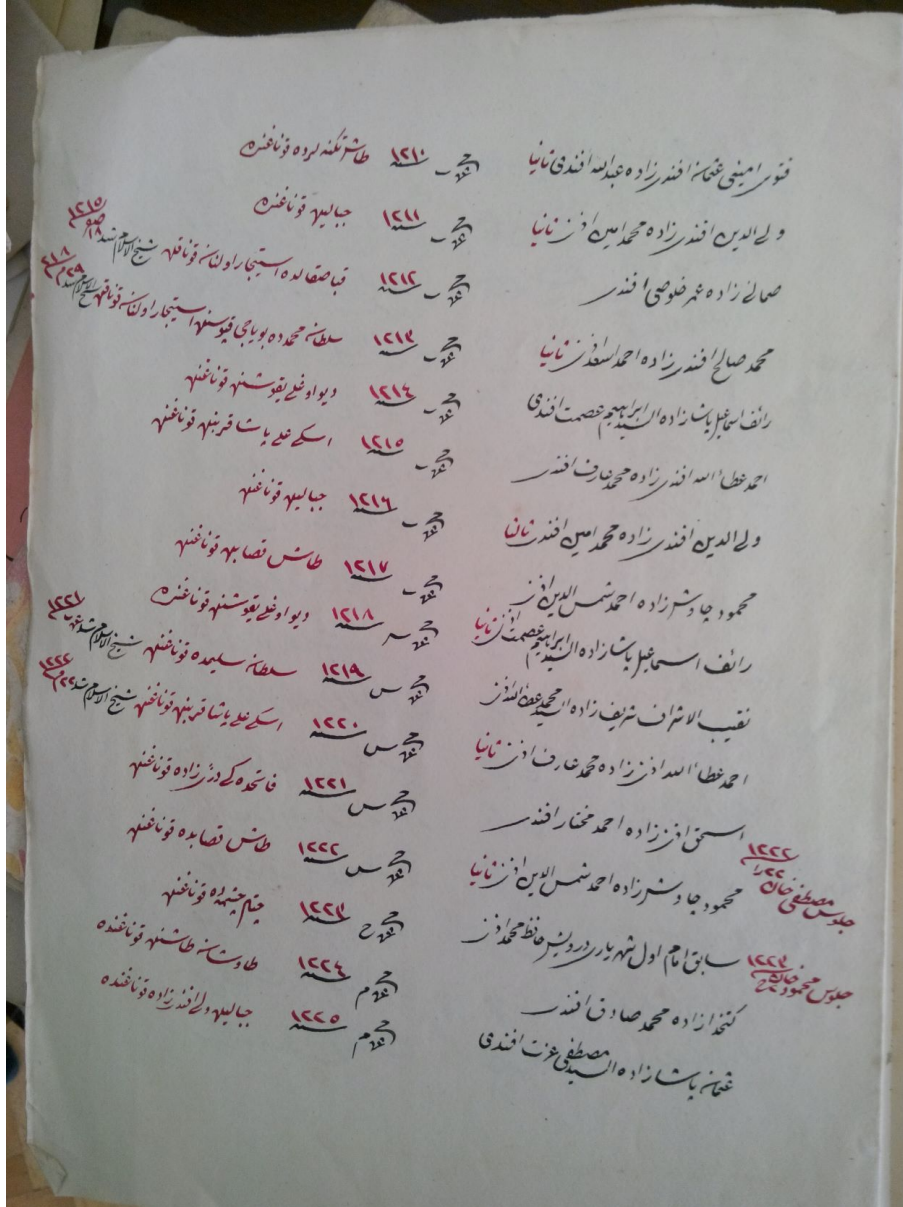 فتوى امينى عثمان افندى زاده عبد الله افندى ثانيا سنه ١٢١٠ طاش تكنه لرده قوناغنده
ولى الدين افندى زاده محمد امين افندى ثانيا سنه ١٢١١ جبالين قوناغنده
صمانى زاده عمر خلوصى افندى سنه ١٢١٢ قباصقالده استيجار اولنان قوناقدن شيخ الاسلام شد ١٨ ص ١٢١٥
محمد صالح افندى زاده احمد اسعد افندى ثانيا سنه ١٢١٣ سلطان محمدده بوياجى قپوسنده استيجار اولنان قوناقدن شيخ الاسلام شد ٢٩ م ١٢١٨
رائف اسماعيل پاشا زاده السيد ابراهيم عصمت افندى سنه ١٢١٤ ديو اوغلى يقوشنده قوناغنده
احمد عطاء الله افندى زاده محمد عارف افندى سنه ١٢١٥ اسكى على پاشا قربنده قوناغنده
ولى الدين افندى زاده محمد امين افندى ثالثا سنه ١٢١٦ جبالين قوناغنده
محمود چاوش زاده احمد شمس الدين افندى سنه ١٢١٧ طاش قصابده قوناغنده
رائف اسماعيل پاشا زاده السيد ابراهيم عصمت افندى ثانيا سنه ١٢١٨ ديو اوغلى يقوشنده قوناغنده
نقيب الاشراف شريف زاده السيد محمد عطاء الله افندى سنه ١٢١٩ سلطان سليمده قوناغنده شيخ الاسلام شد ١٢٢١
احمد عطاء الله افندى زاده محمد عارف افندى ثانيا سنه ١٢٢٠ اسكى على پاشا قربنده قوناغنده شيخ الاسلام شد ١٢٢٢
اسحق افندى زاده احمد مختار افندى سنه ١٢٢١ فاتحده كى درى زاده قوناغنده
جلوس مصطفى خان ٢٢ را ١٢٢٢
محمود چاوش زاده احمد شمس الدين افندى ثانيا سنه ١٢٢٢ طاش قصابده قوناغنده
سابق امام اول شهريارى درويش حافظ محمد افندى سنه ١٢٢٣ چشمه ده قوناغنده
جلوس محمود خان ١٢٢٣
كتخدا زاده محمد صادق افندى سنه ١٢٢٤ طاوشان طاشنده قوناغنده
عثمان پاشا زاده السيد مصطفى عزت افندى سنه ١٢٢٥ جبالين ولى افندى زاده قوناغنده